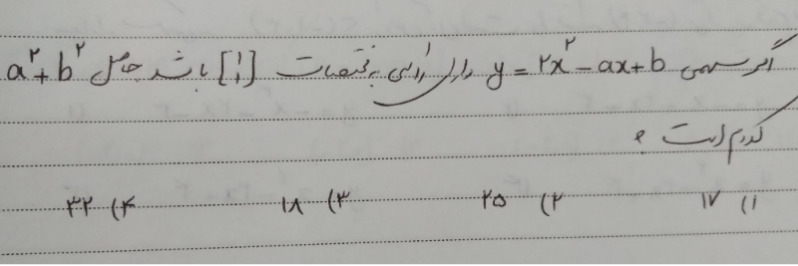 اگر سهمی y = ۲x² - ax + b دارای رأسی به مختصات [۱ ۱] باشد حاصل a² + b²
کدام است ؟
۱) ۱۷ ۲) ۲۵ ۳) ۱۸ ۴) ۳۲